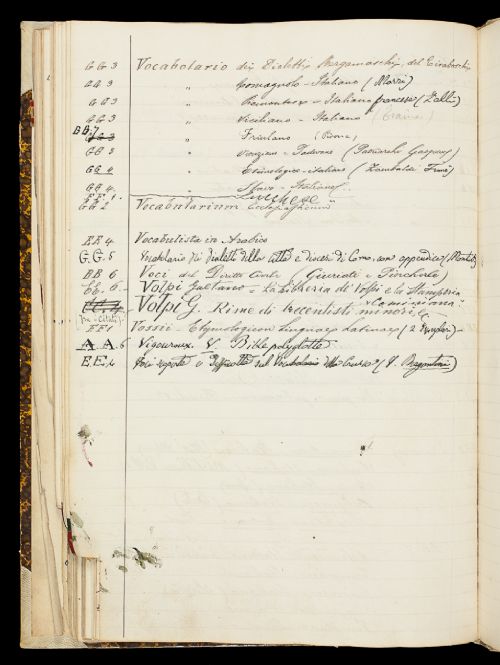 GG 3 Vocabolario dei Dialetti Bergamaschi, del Tiraboschi
GG 3 " Romagnolo - Italiano (Morri)
GG 3 " Piemontese - Italiano francese (Zalli)
GG 3 " Siciliano - Italiano (Traina)
BB 7 GG 3 " Friulano (Pirona)
GG 3 " Veneziano - Padovano (Patriarchi Gasparo)
GG 4 " Etimologico - italiano (Zambaldi Franc)
GG 4. " Slavo - Italiano
EE 1. Lucchese
GG 2 Vocabularium Ecclesiasticum
EE 4 Vocabulista in Arabico
G.G. 5 Vocabolario dei dialetti della città e diocesi di Como, con appendice (Monti)
BB 6 Voci del Diritto Civile (Giuriati e
EE. 6 - Volpi Gaetano - La Libreria de' Volpi e la Stamperia
Cominiana
Volpi G. Rime di trecentisti minori,
EE 1 Vossii - Etymologicon Linguae Latinae (2
A. A. 6 Vigouroux. V. Bible polyglotte
E.E. 4 Voci e